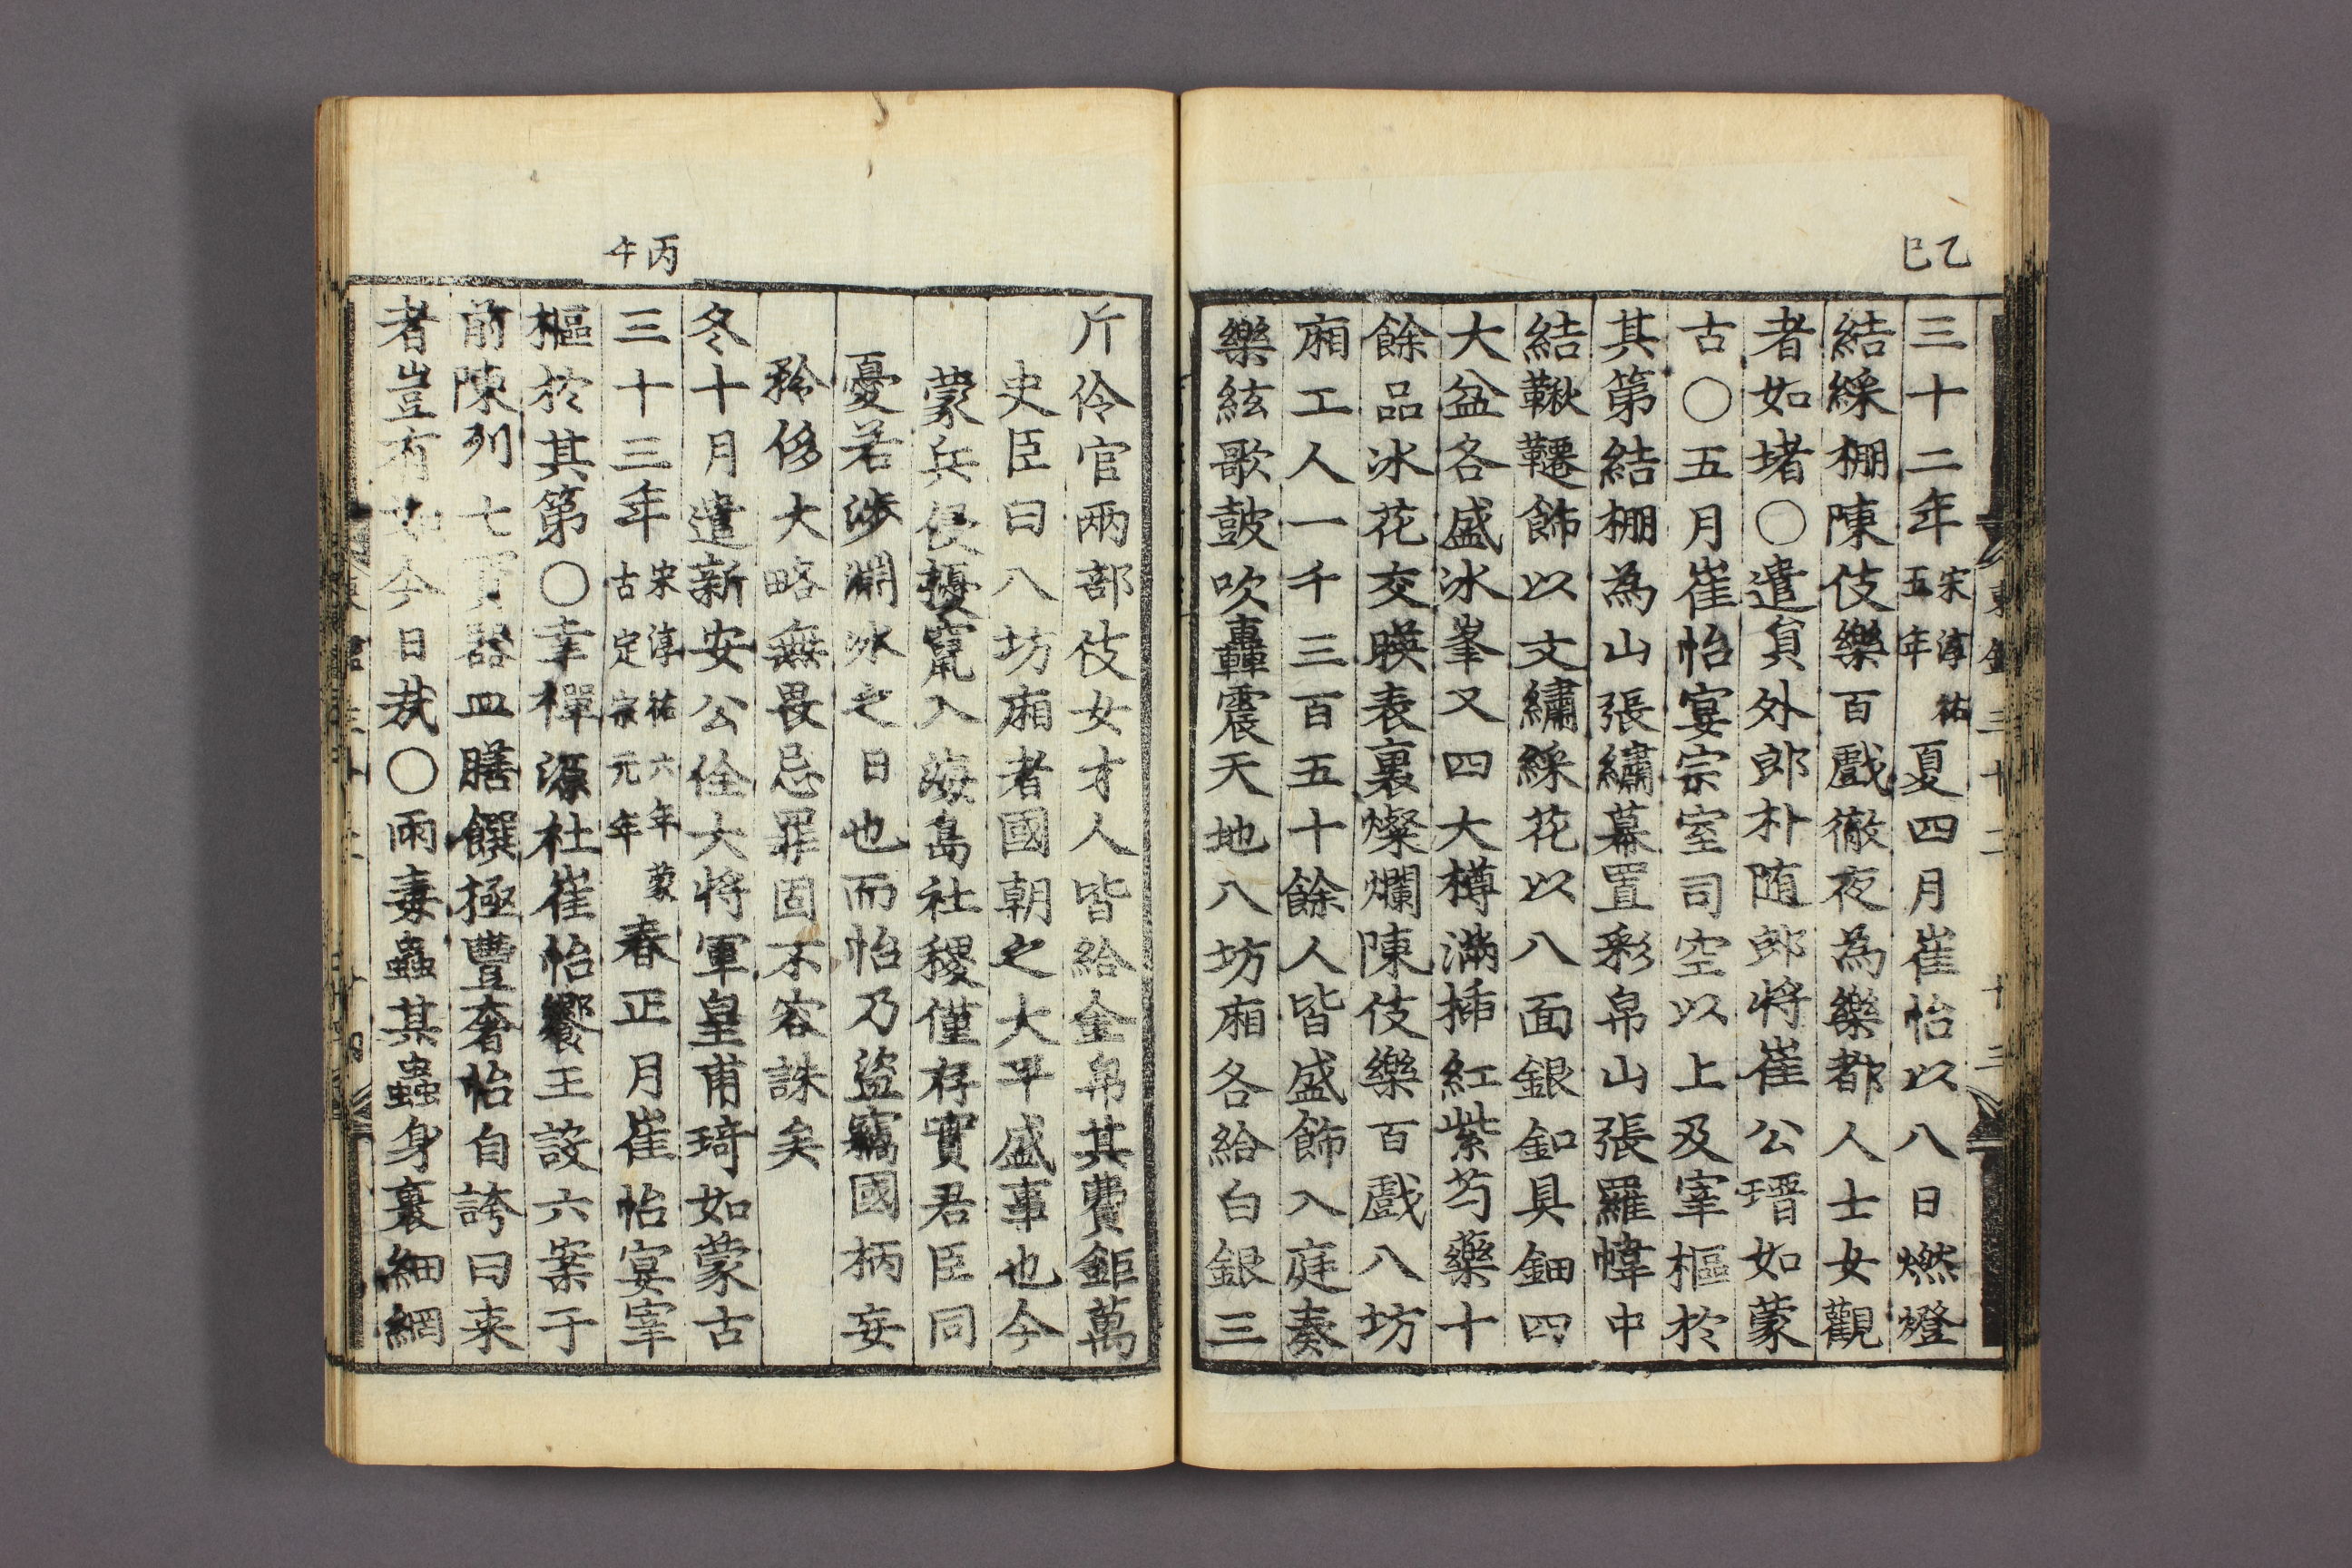 乙巳
三十二年宋淳祐五年夏四月崔怡以八日燃燈
結綵棚陳伎樂百戲徹夜為樂都人士女觀
者如堵○遣員外郎朴随郎將崔公瑨如蒙
古○五月崔怡宴宗室司空以上及宰樞於
其第結棚為山張繡幕置彩帛山張羅幃中
結鞦韆飾以文繡綵花以八面銀釦具鈿四
大盆各盛氷峯又四大樽滿揷紅紫芍藥十
餘品氷花交暎表裏燦爛陳伎樂百戲八坊
廂工人一千三百五十餘人皆盛飾入庭奏
樂絃歌鼓吹轟震天地八坊廂各給白銀三
丙午
斤伶官兩部伎女才人皆給金帛其費鉅萬
史臣曰八坊廂者國朝之大平盛事也今
蒙兵侵擾竄入海島社稷僅存實君臣同
憂若涉淵氷之日也而怡乃盜竊國柄妄
矜侈大略無畏忌罪固不容誅矣
冬十月遣新安公佺大將軍皇甫琦如蒙古
三十三年宋淳祐六年蒙古定宗元年春正月崔怡宴宰
樞於其第○幸禪源社崔怡饗王設六案于
前陳列七寶器皿膳饌極豊奢怡自誇曰来
者豈有如今日㢤○雨毒蟲其蟲身裹細網